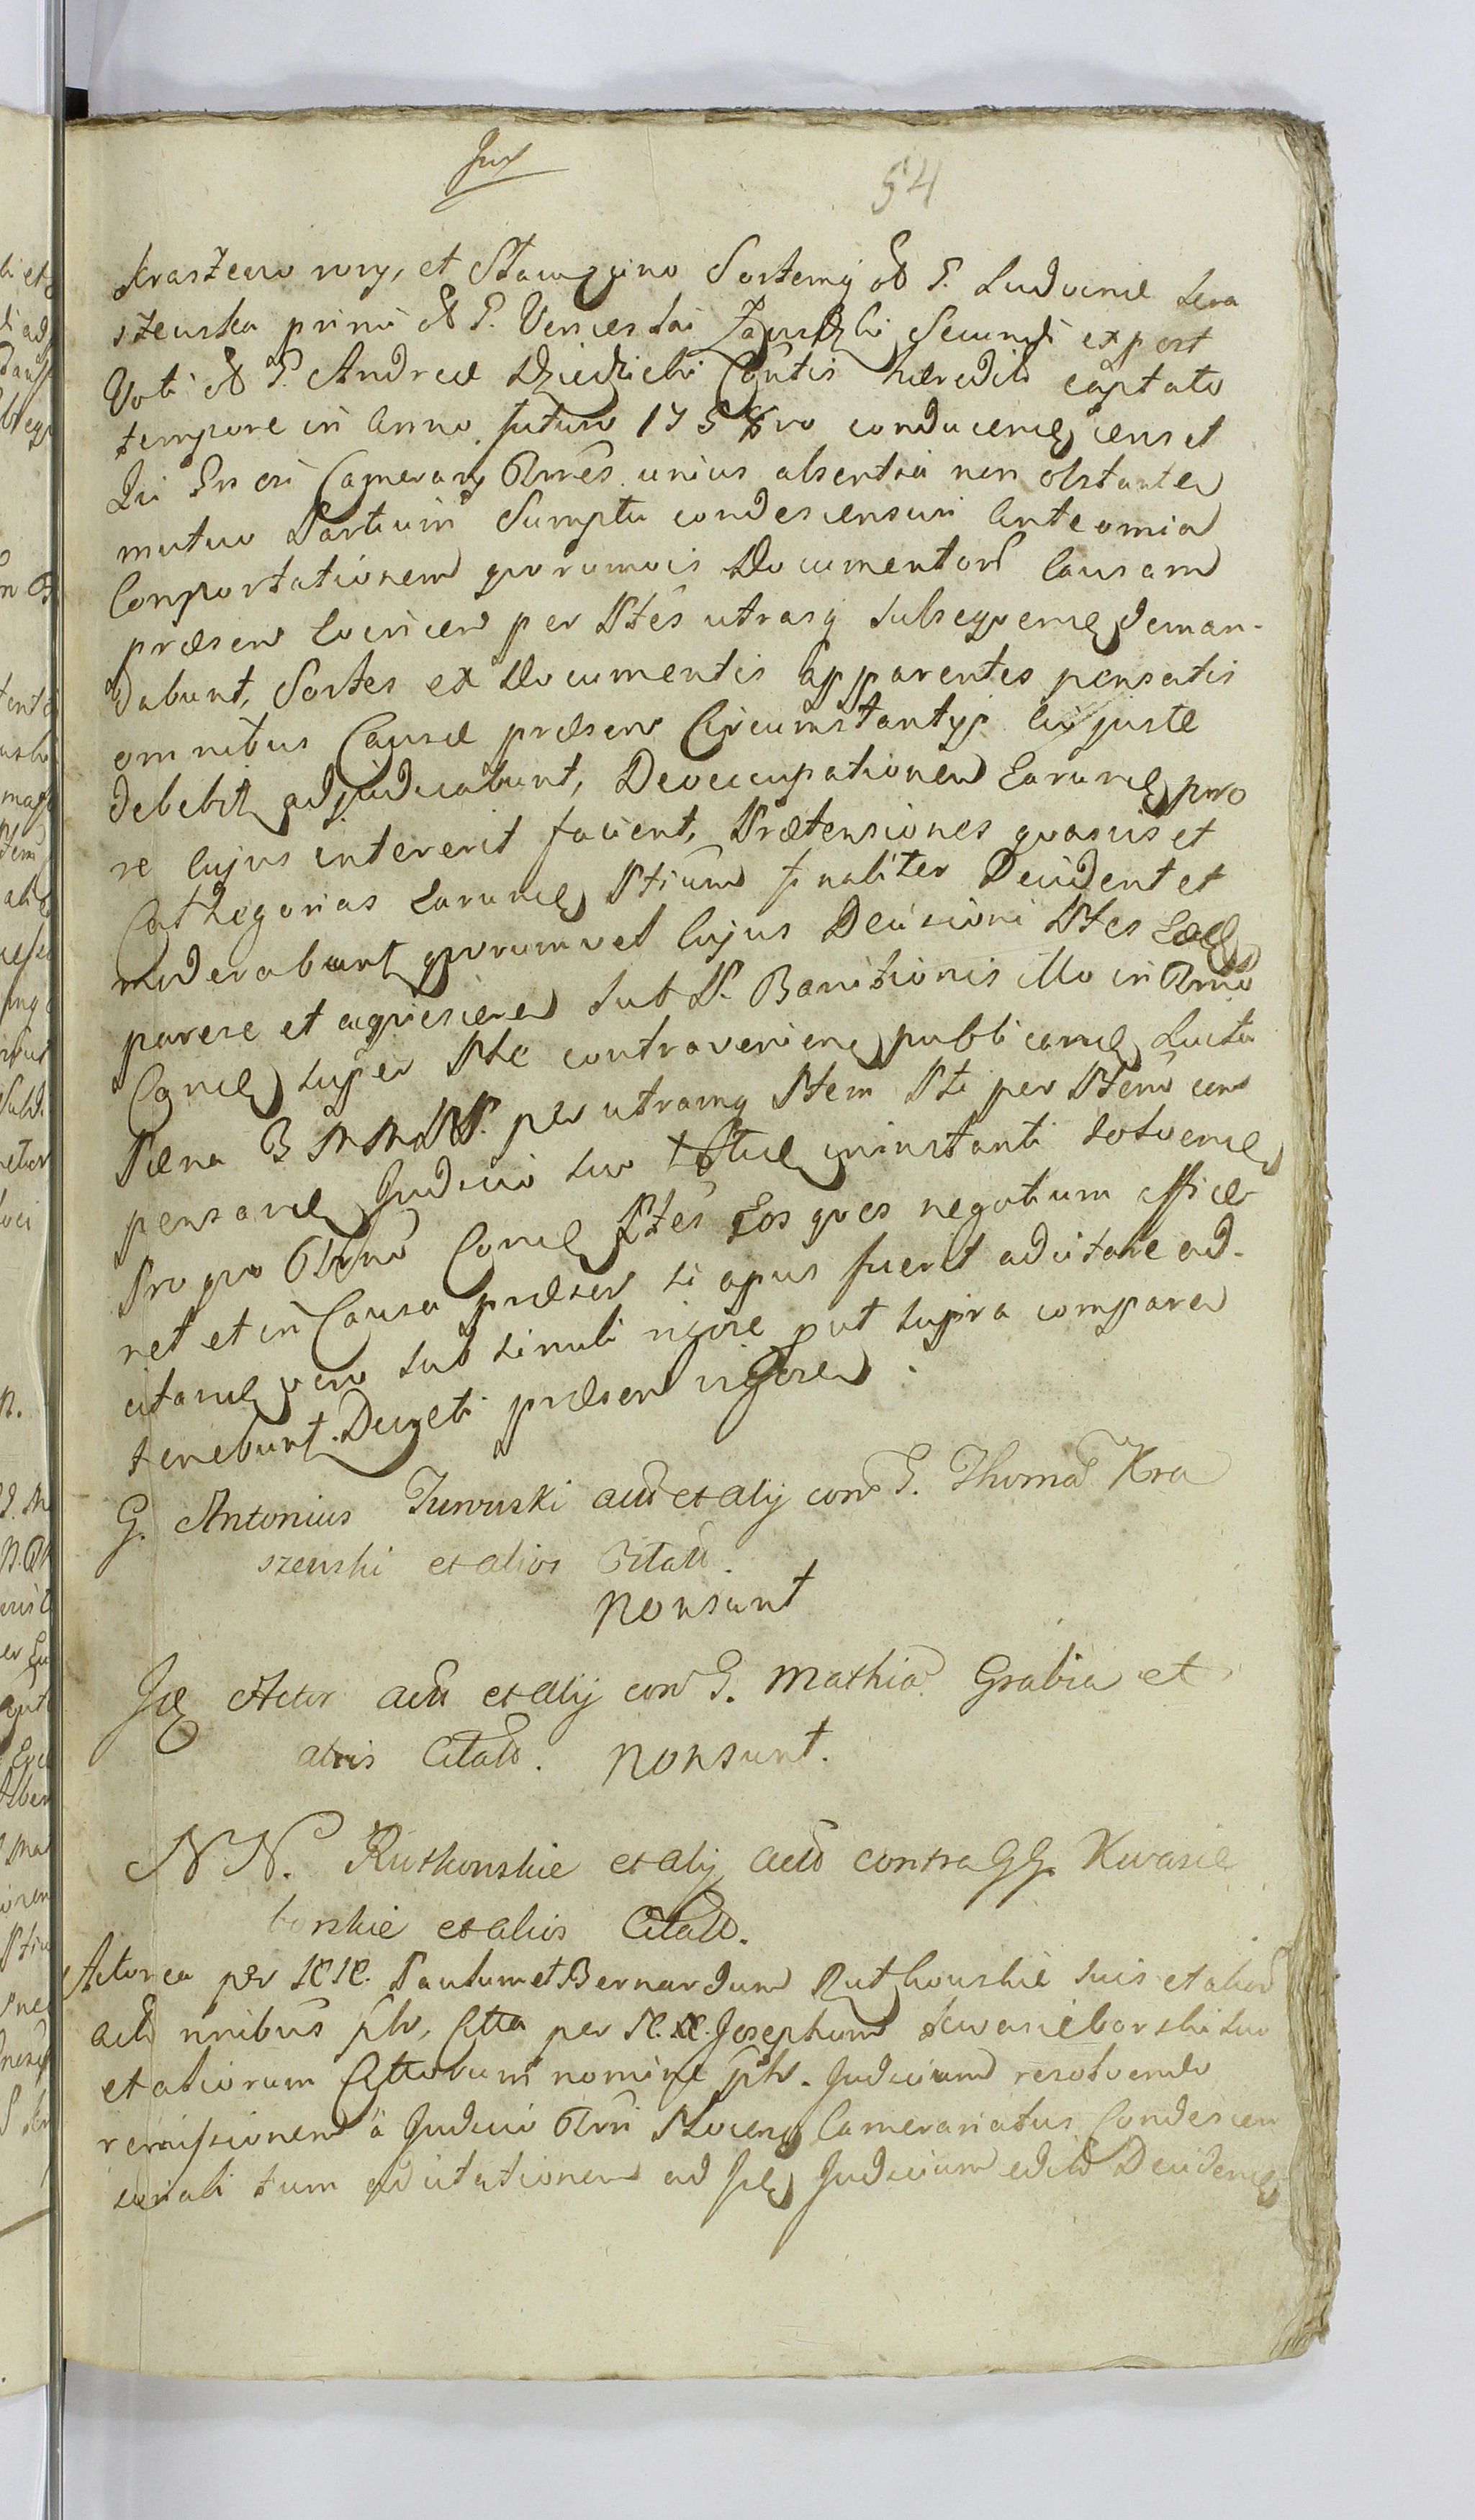 54
Kraszewo rory, et Stawęcino Sortemq̃ & G. Ludovicæ Kra
szewska primi & G. Venceslai Zawidzki Secundi ex post
Voti & G. Andreæ Dziedzicki Csortis hæredib captato
tempore in Anno futuro 1758vo conducen censet
Qui Camerarij Trnes unius absentia non obstante
mutuo Partium Sumptu condescensuri Ante omnia
Comportationem quorumvis Documentor Causam
præsen concer per Ptes utrasq subsequen deman-
dabunt, Sortes ex Documentis apparentes pensatis
omnibus Causæ præsen Circumstantijs cui juste
debebit adjudicabunt, Deoccupationem Earum pro
re cujus intererit facient, Prætensiones quasvis et
Cathegorias earum Ptium finaliter Decident et
moderabunt quorumvel cujus Decisioni Ptes Eæd
parere et acquiescere sub P. Banitionis illo in Trno
super Pte contravenien publicand Lucta
Pæna 3 M M M P. per utramq Ptem Pti per Ptem con
pensand Judicio suo in instanti solven
Pro quo Trno Ptes Eos quos negotium effice
ret et in Causa præsen si opus fuerit adcitare ad-
citand vero sub simili rigore put supra compare
tenebunt. Decreti præsen vigore.
G. Antonius Turowski act et alij con G. Thoma Kra
szewski et alios Citatt.
Non sunt
Id Actor act et alij con G. Mathia Grabia et
alios Citatt. Non sunt.
N. N. Rutkowskie et alij act contra GG. Kwasie
borskie et alios Citatt.
Actorea per N. N. Paulum et Bernardum Rutkowskie suis et alior
act nnibus pls, Citta per N. N. Josephum Kwasieborski suo
et aliorum Cittorum nomine pls. Judicium resolvendo
remissionem à Judicio Trri Plocen Camerariatus Condescen
soriali tum adcitationem ad Judicium edit Deciden